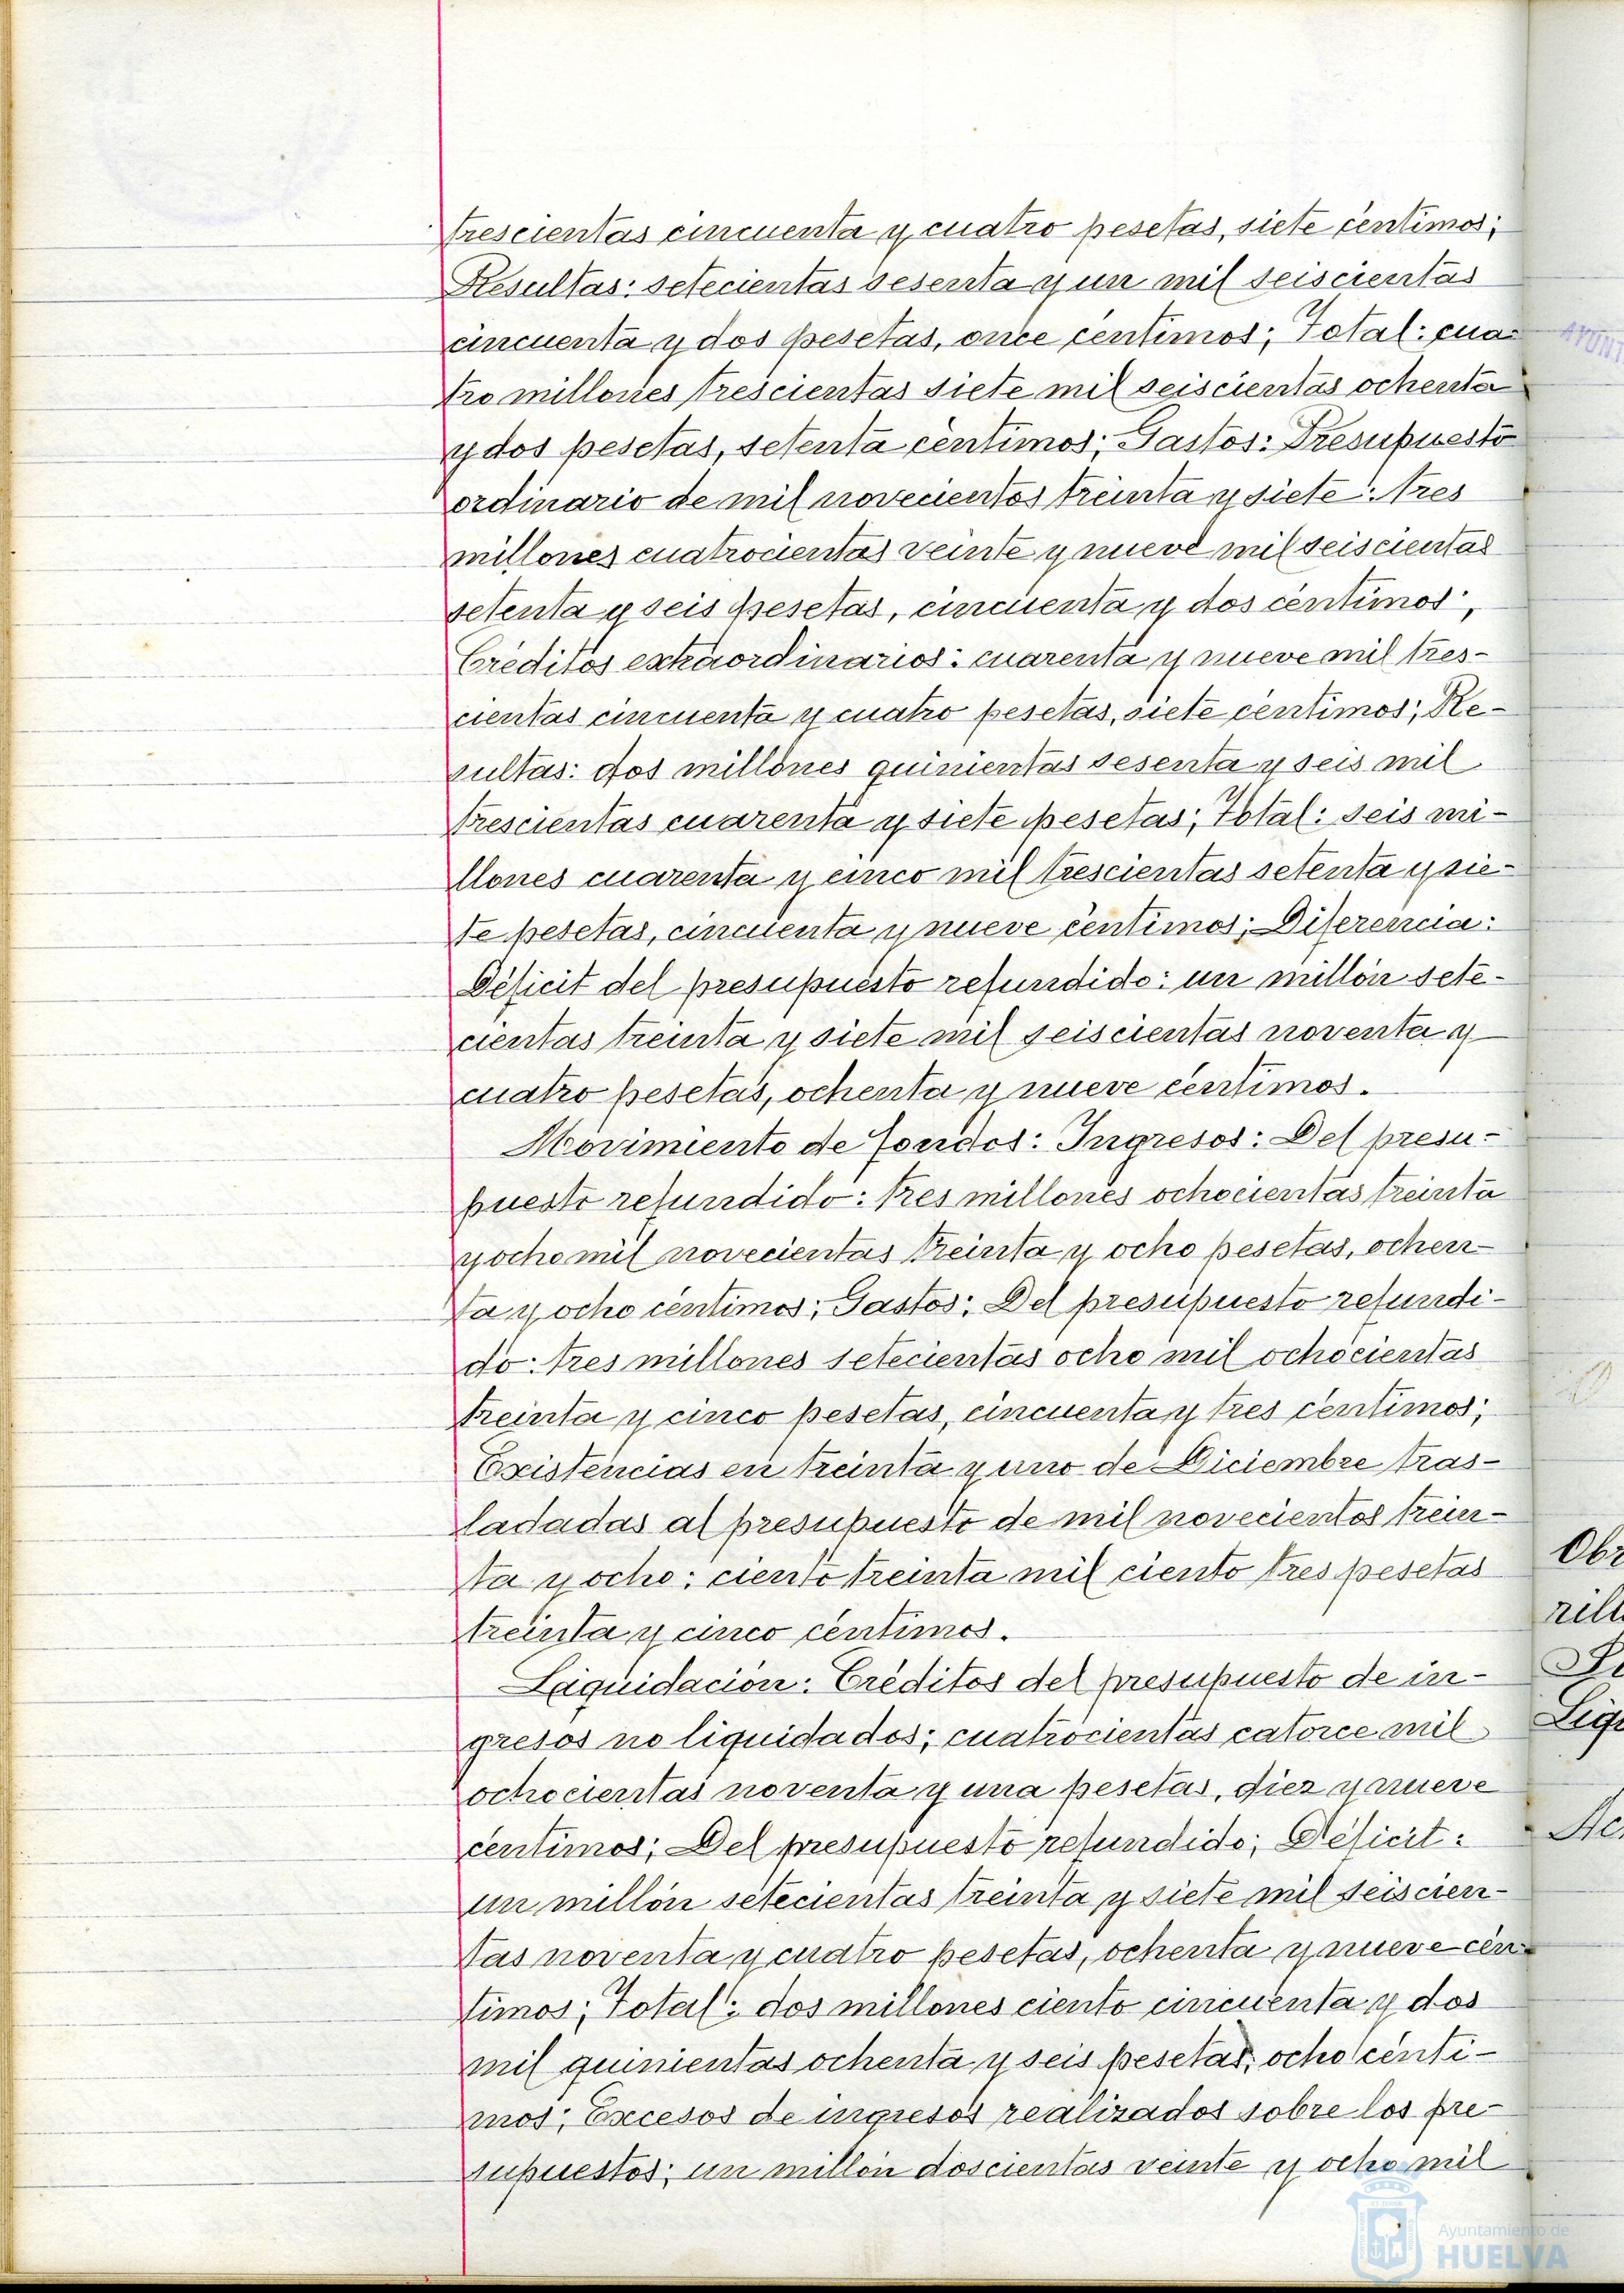 trescientas cincuenta y cuatro pesetas, siete céntimos;
Resultas: setecientas sesenta y un mil seiscientas
cincuenta y dos pesetas, once céntimos; Total: cua-
tro millones trescientas siete mil seiscientas ochenta
y dos pesetas, setenta céntimos; Gastos: Presupuesto
ordinario de mil novecientos treinta y siete: tres
millones cuatrocientas veinte y nueve mil seiscientas
setenta y seis pesetas, cincuenta y dos céntimos;
Créditos extraordinarios: cuarenta y nueve mil tres-
cientas cincuenta y cuatro pesetas, siete céntimos; Re-
sultas: dos millones quinientas sesenta y seis mil
trescientas cuarenta y siete pesetas; Total: seis mi-
llones cuarenta y cinco mil trescientas setenta y sie-
te pesetas, cincuenta y nueve céntimos; Diferencia:
Déficit del presupuesto refundido: un millón sete-
cientas treinta y siete mil seiscientas noventa y
cuatro pesetas, ochenta y nueve céntimos.
Movimiento de fondos: Ingresos: Del presu-
puesto refundido: tres millones ochocientas treinta
y ocho mil novecientas treinta y ocho pesetas, ochen-
ta y ocho céntimos; Gastos: Del presupuesto refundi-
do: tres millones setecientas ocho mil ochocientas
treinta y cinco pesetas, cincuenta y tres céntimos;
Existencias en treinta y uno de Diciembre tras-
ladadas al presupuesto de mil novecientos trein-
ta y ocho: ciento treinta mil ciento tres pesetas
treinta y cinco céntimos.
Liquidación: Créditos del presupuesto de in-
gresos no liquidados; cuatrocientas catorce mil
ochocientas noventa y una pesetas, diez y nueve
céntimos; Del presupuesto refundido; Déficit:
un millón setecientas treinta y siete mil seiscien-
tas noventa y cuatro pesetas, ochenta y nueve cén-
timos; Total: dos millones ciento cincuenta y dos
mil quinientas ochenta y seis pesetas, ocho cénti-
mos; Excesos de ingresos realizados sobre los pre-
supuestos; un millón doscientas veinte y ocho mil
Obr
rill
Liqu
Ayuntamiento de
HUELVA